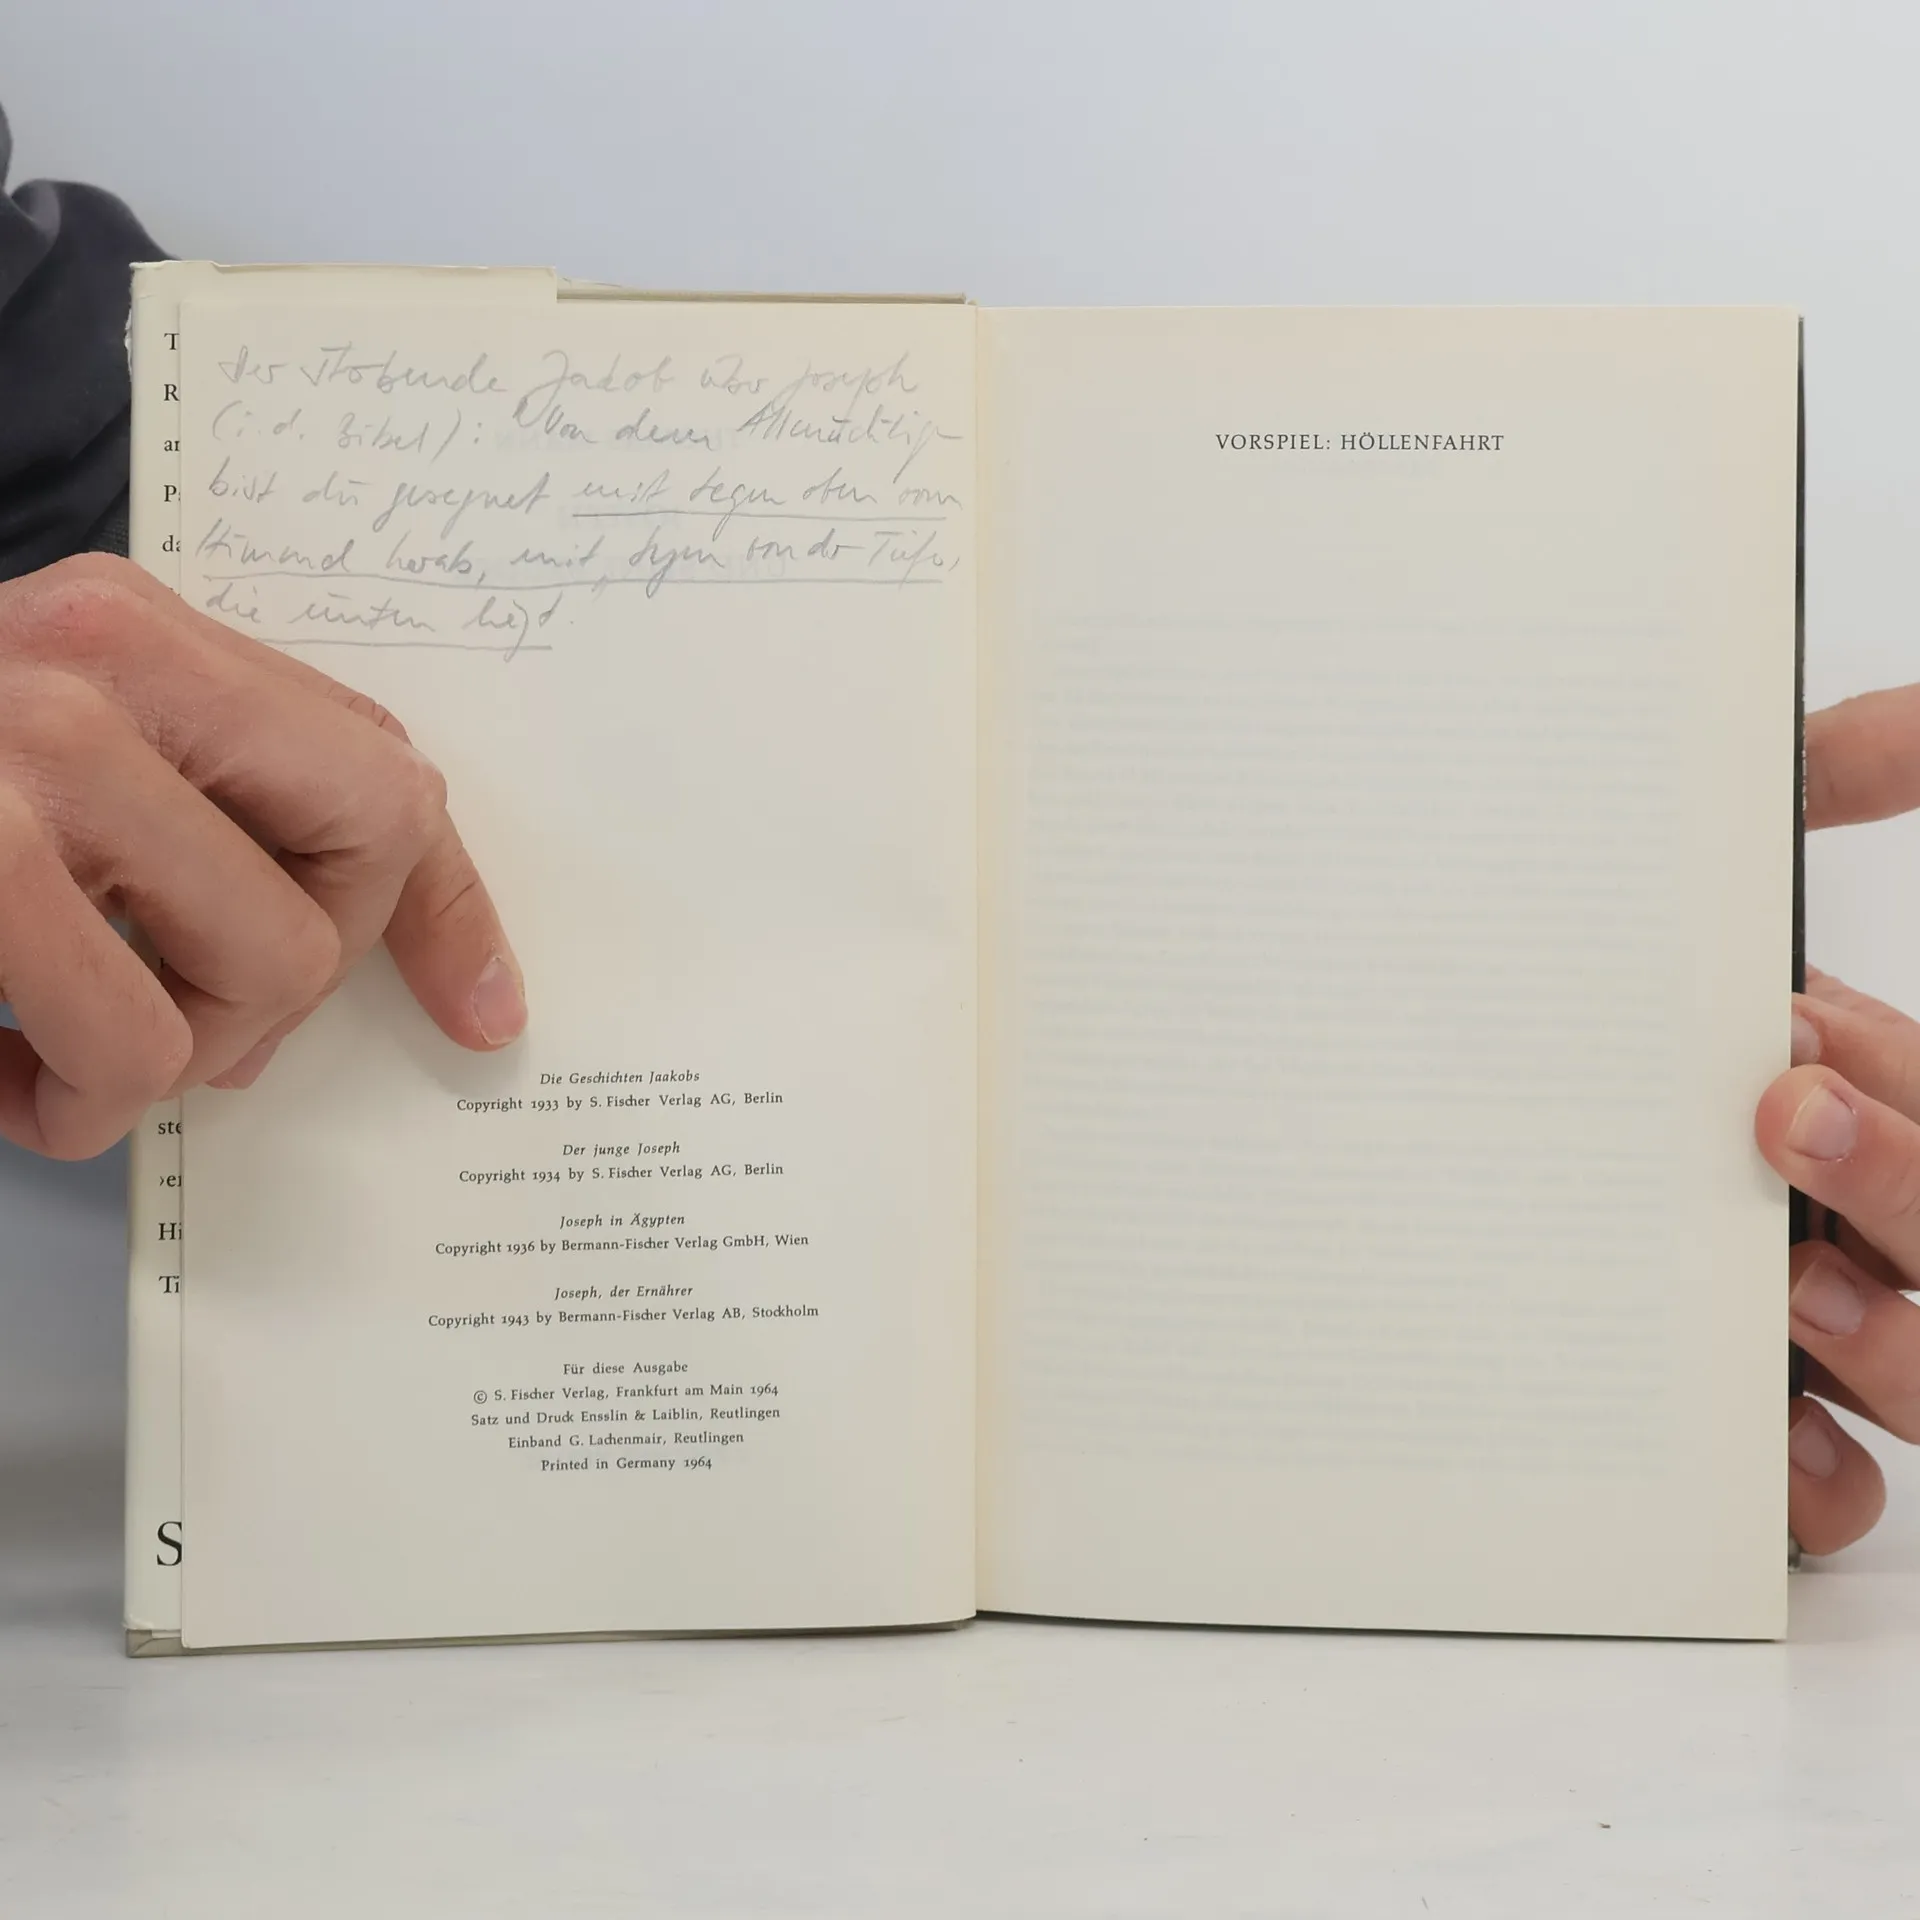 Der sterbende Jakob über Joseph
(i. d. Bibel): "Von dem Allmächtigen
bist du gesegnet mit Segen oben vom
Himmel herab, mit Segen von der Tiefe,
die unten liegt."
T
R
ar
da
ste
›er
Hi
Ti
S
Die Geschichten Jaakobs
Copyright 1933 by S. Fischer Verlag AG, Berlin
Der junge Joseph
Copyright 1934 by S. Fischer Verlag AG, Berlin
Joseph in Ägypten
Copyright 1936 by Bermann-Fischer Verlag GmbH, Wien
Joseph, der Ernährer
Copyright 1943 by Bermann-Fischer Verlag AB, Stockholm
Für diese Ausgabe
© S. Fischer Verlag, Frankfurt am Main 1964
Satz und Druck Ensslin & Laiblin, Reutlingen
Einband G. Lachenmair, Reutlingen
Printed in Germany 1964
VORSPIEL: HÖLLENFAHRT